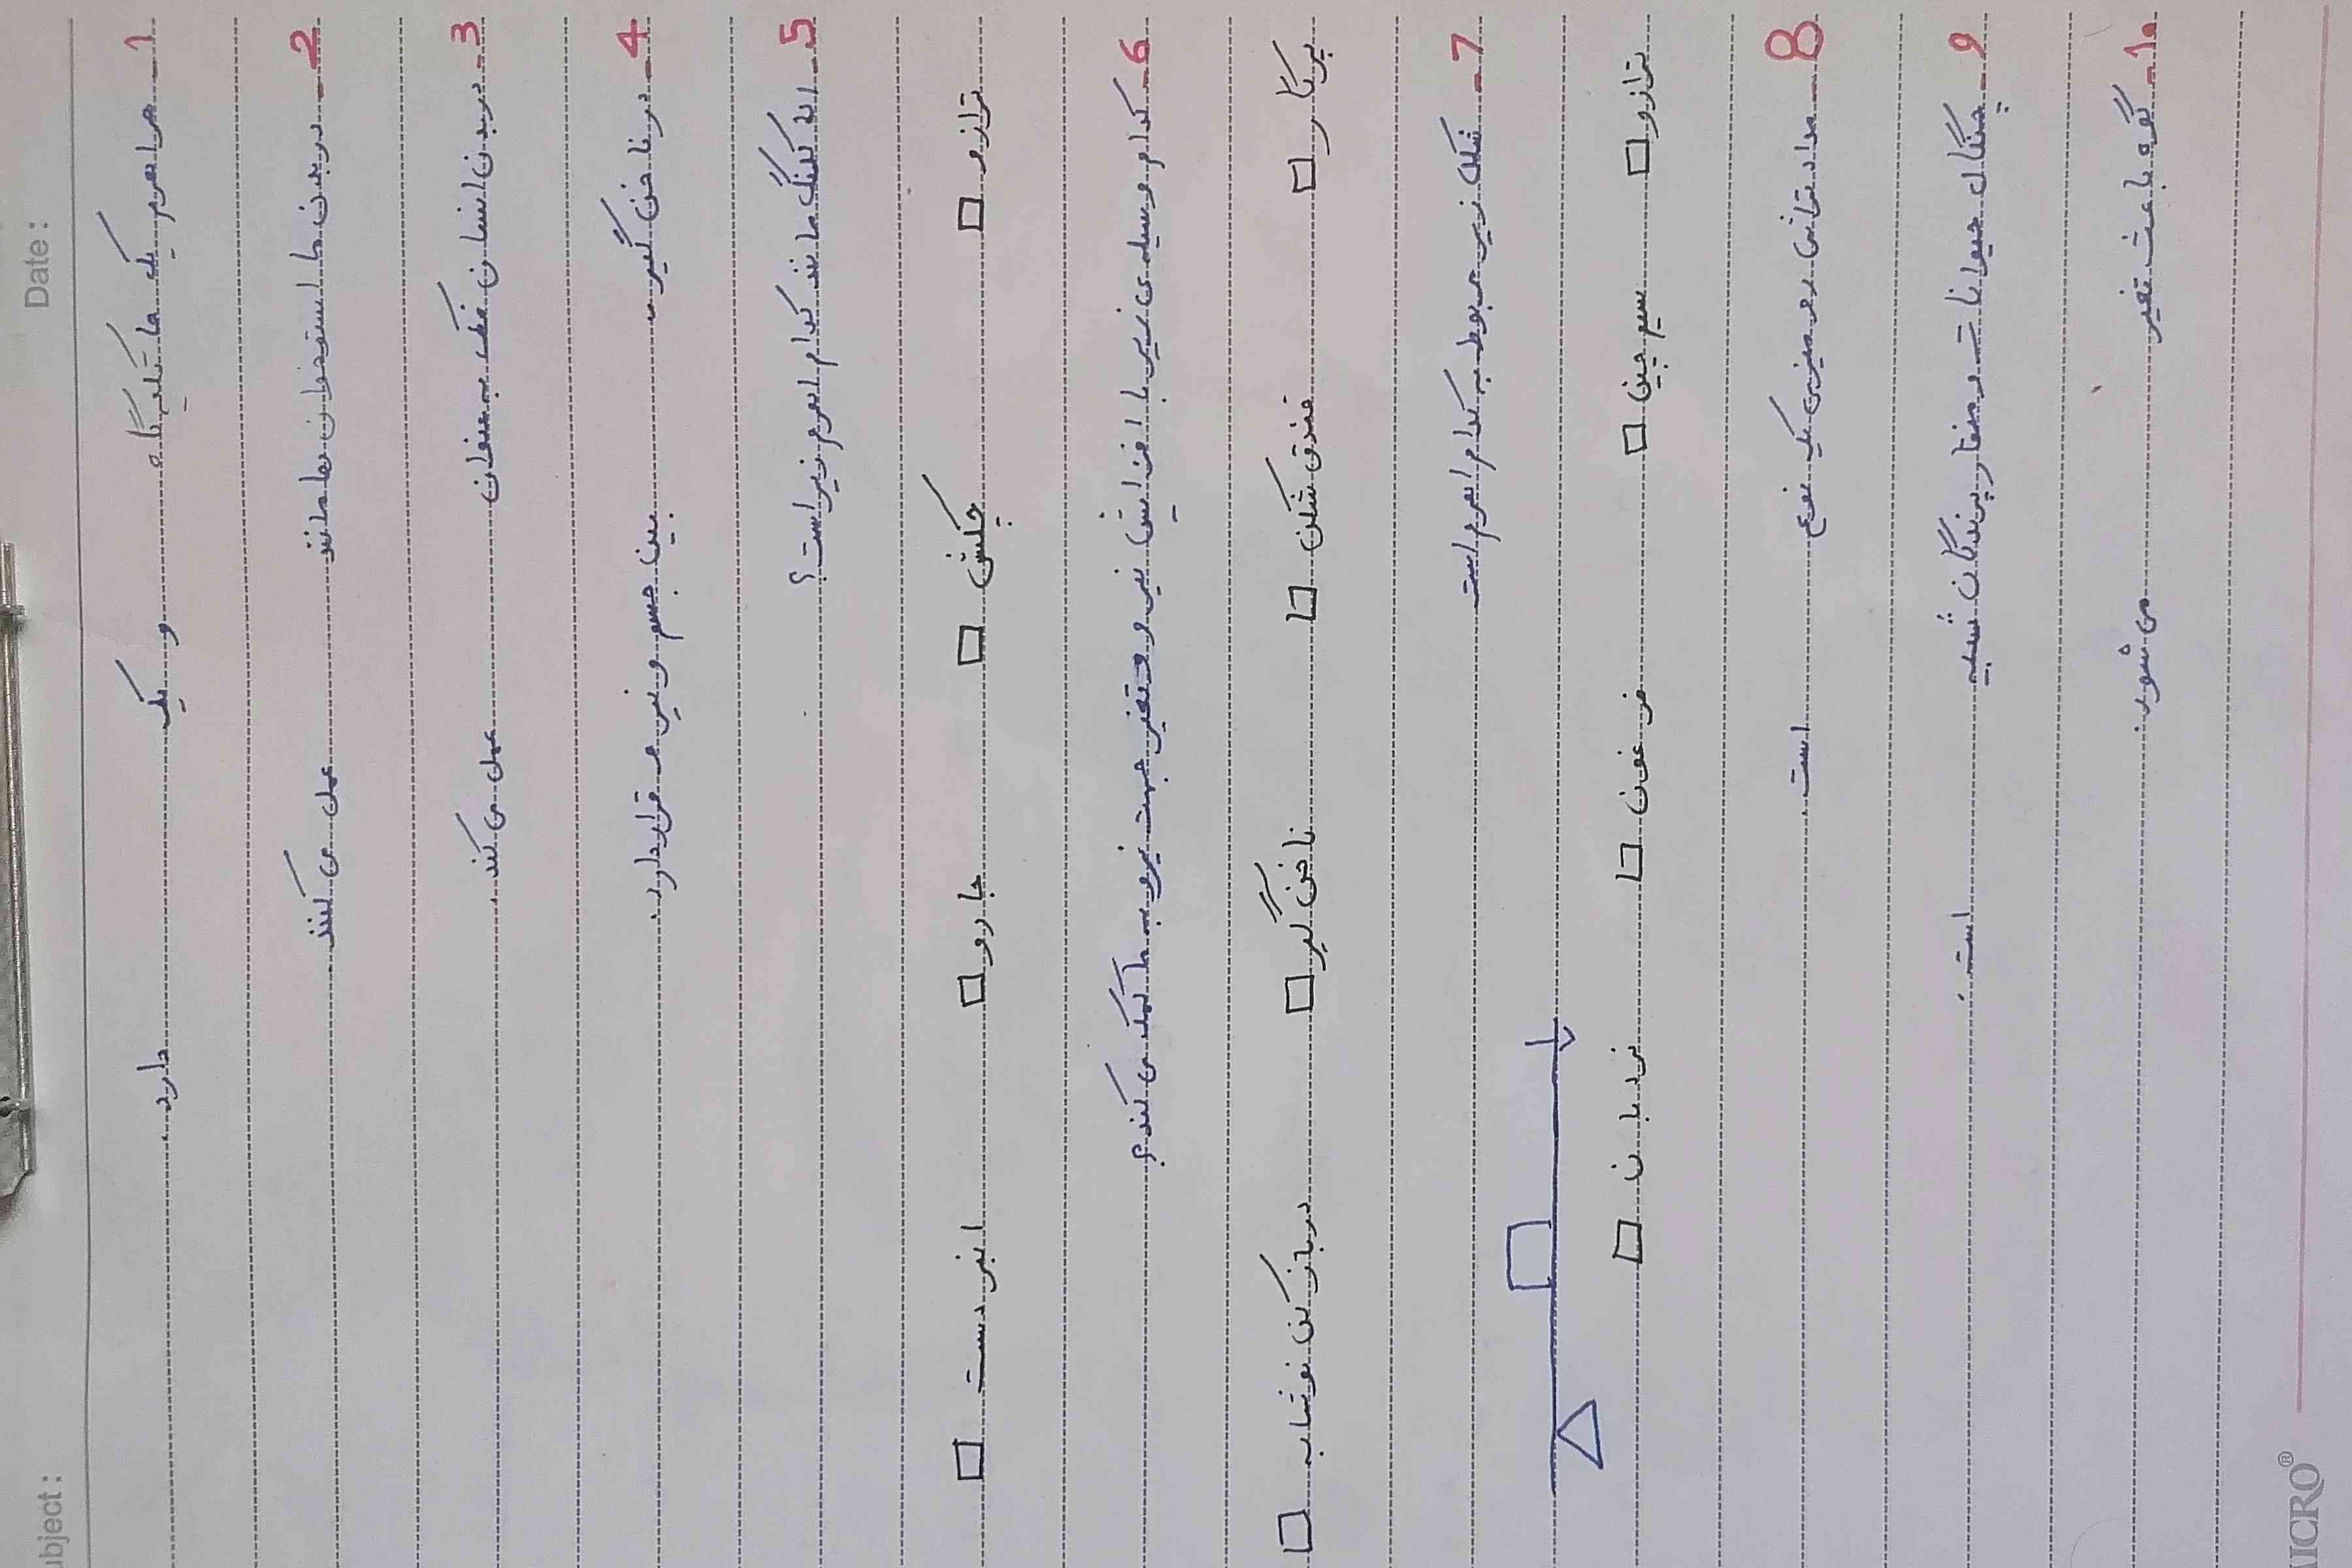 Subject:
Date:
1- هر اهرم یک تا تکیه‌گاه ........ و یک ........ دارد.
2- در بدن ما استخوان ها مانند ........ عمل می کنند.
3- در بدن انسان فک به عنوان ........ عمل می کند.
4- در ناخن گیر ........ بین جسم و نیرو قرار دارد.
5- الاکلنگ مانند کدام اهرم زیر است؟
ترازو □ چکش □ جارو □ انبردست □
6- کدام وسیله ی زیر با افزایش نیرو و تغیر جهت نیرو به ما کمک می کند؟
پرگار □ فندق شکن □ ناخن گیر □ درباز کن نوشابه □
7- شکل زیر مربوط به کدام اهرم است
ترازو □ سیم چین □ فرغون □ نردبان □
8- مداد تراش رومیزی یک نوع ........ است.
9- چنگال حیوانات و منقار پرندگان شبیه ........ است.
10- گوه باعث تغیر ........ می شود.
MICRO®